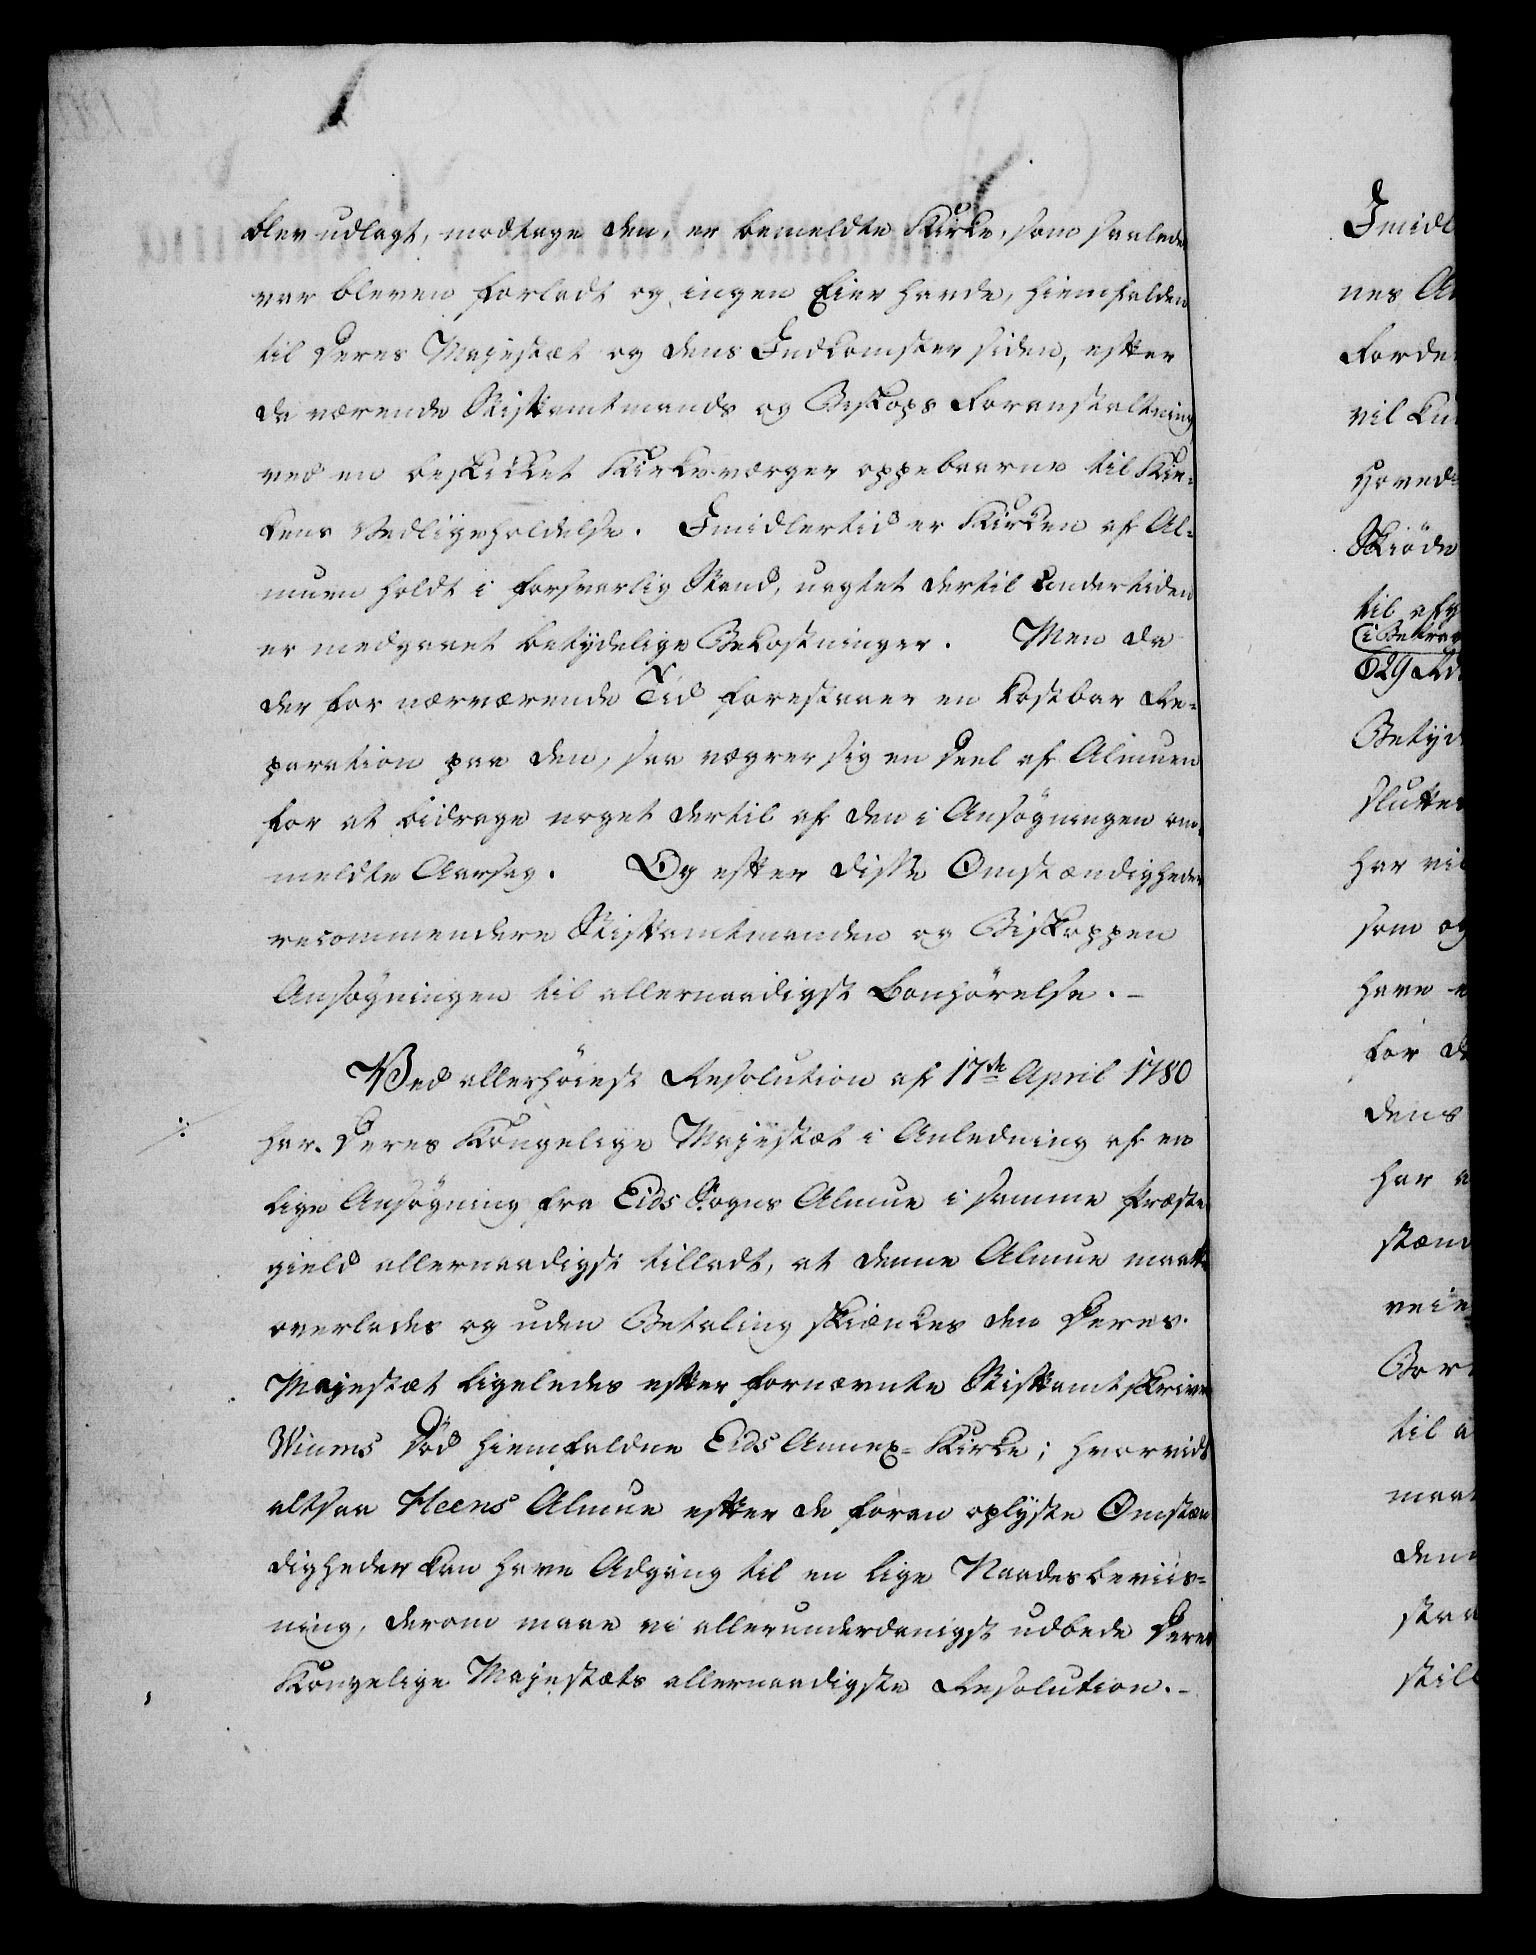 blev udlagt, modtage den, er bemeldte Kirke, som saaledes
var bleven forladt og ingen Eier havde, hiemfalden
til Deres Majestæt og dens Indkomster siden, efter
da værende Stiftamtmands og Biskops Foranstaltning
ved en beskikket Kirkeværger oppebaarne til Kir-
kens Vedligeholdelse. Imidlertid er Kirken af Al-
muen holdt i forsvarlig Stand, uagtet dertil undertiden
er medgaaet betydelige Bekostninger. Men da
der for nærværende Tid forestaaer en kostbar Re-
paration paa den, saa vægrer sig en Deel af Almuen
for at bidrage noget dertil af den i Ansøgningen om-
meldte Aarsag. Og efter disse Omstændigheder
recommendere Stiftamtmanden og Biskoppen
Ansøgningen til allernaadigst Bønhørelse. -
Ved allerhöiest Resolution af 17de April 1780
har Deres Kongelige Majestæt i Anledning af en
lige Ansøgning fra Eids Sogns Almue i samme Præste
gield allernaadigst tilladt, at denne Almue maatte
overlades og uden Betaling skiænkes den Deres
Majestæt ligeledes efter fornævnte Stiftamtskriver
Winms Død hiemfaldne Eids Annex-Kirke; hvorvidt
altsaa Heens Almue efter de foran oplyste Omstæn
digheder kan have Adgang til en lige Naadesbeviis-
ning, derom maae vi allerunderdanigst udbede Deres
Kongelige Majestæts allernaadigste Resolution. -
Imidl
nes A
forde
vil ku
Hoved-
Skiöde
til
629 Rd
Betyd
slutte
har vil
som og
have
for d
dens
har
stæn
veie
Bor
til a
maa
den
staa
still